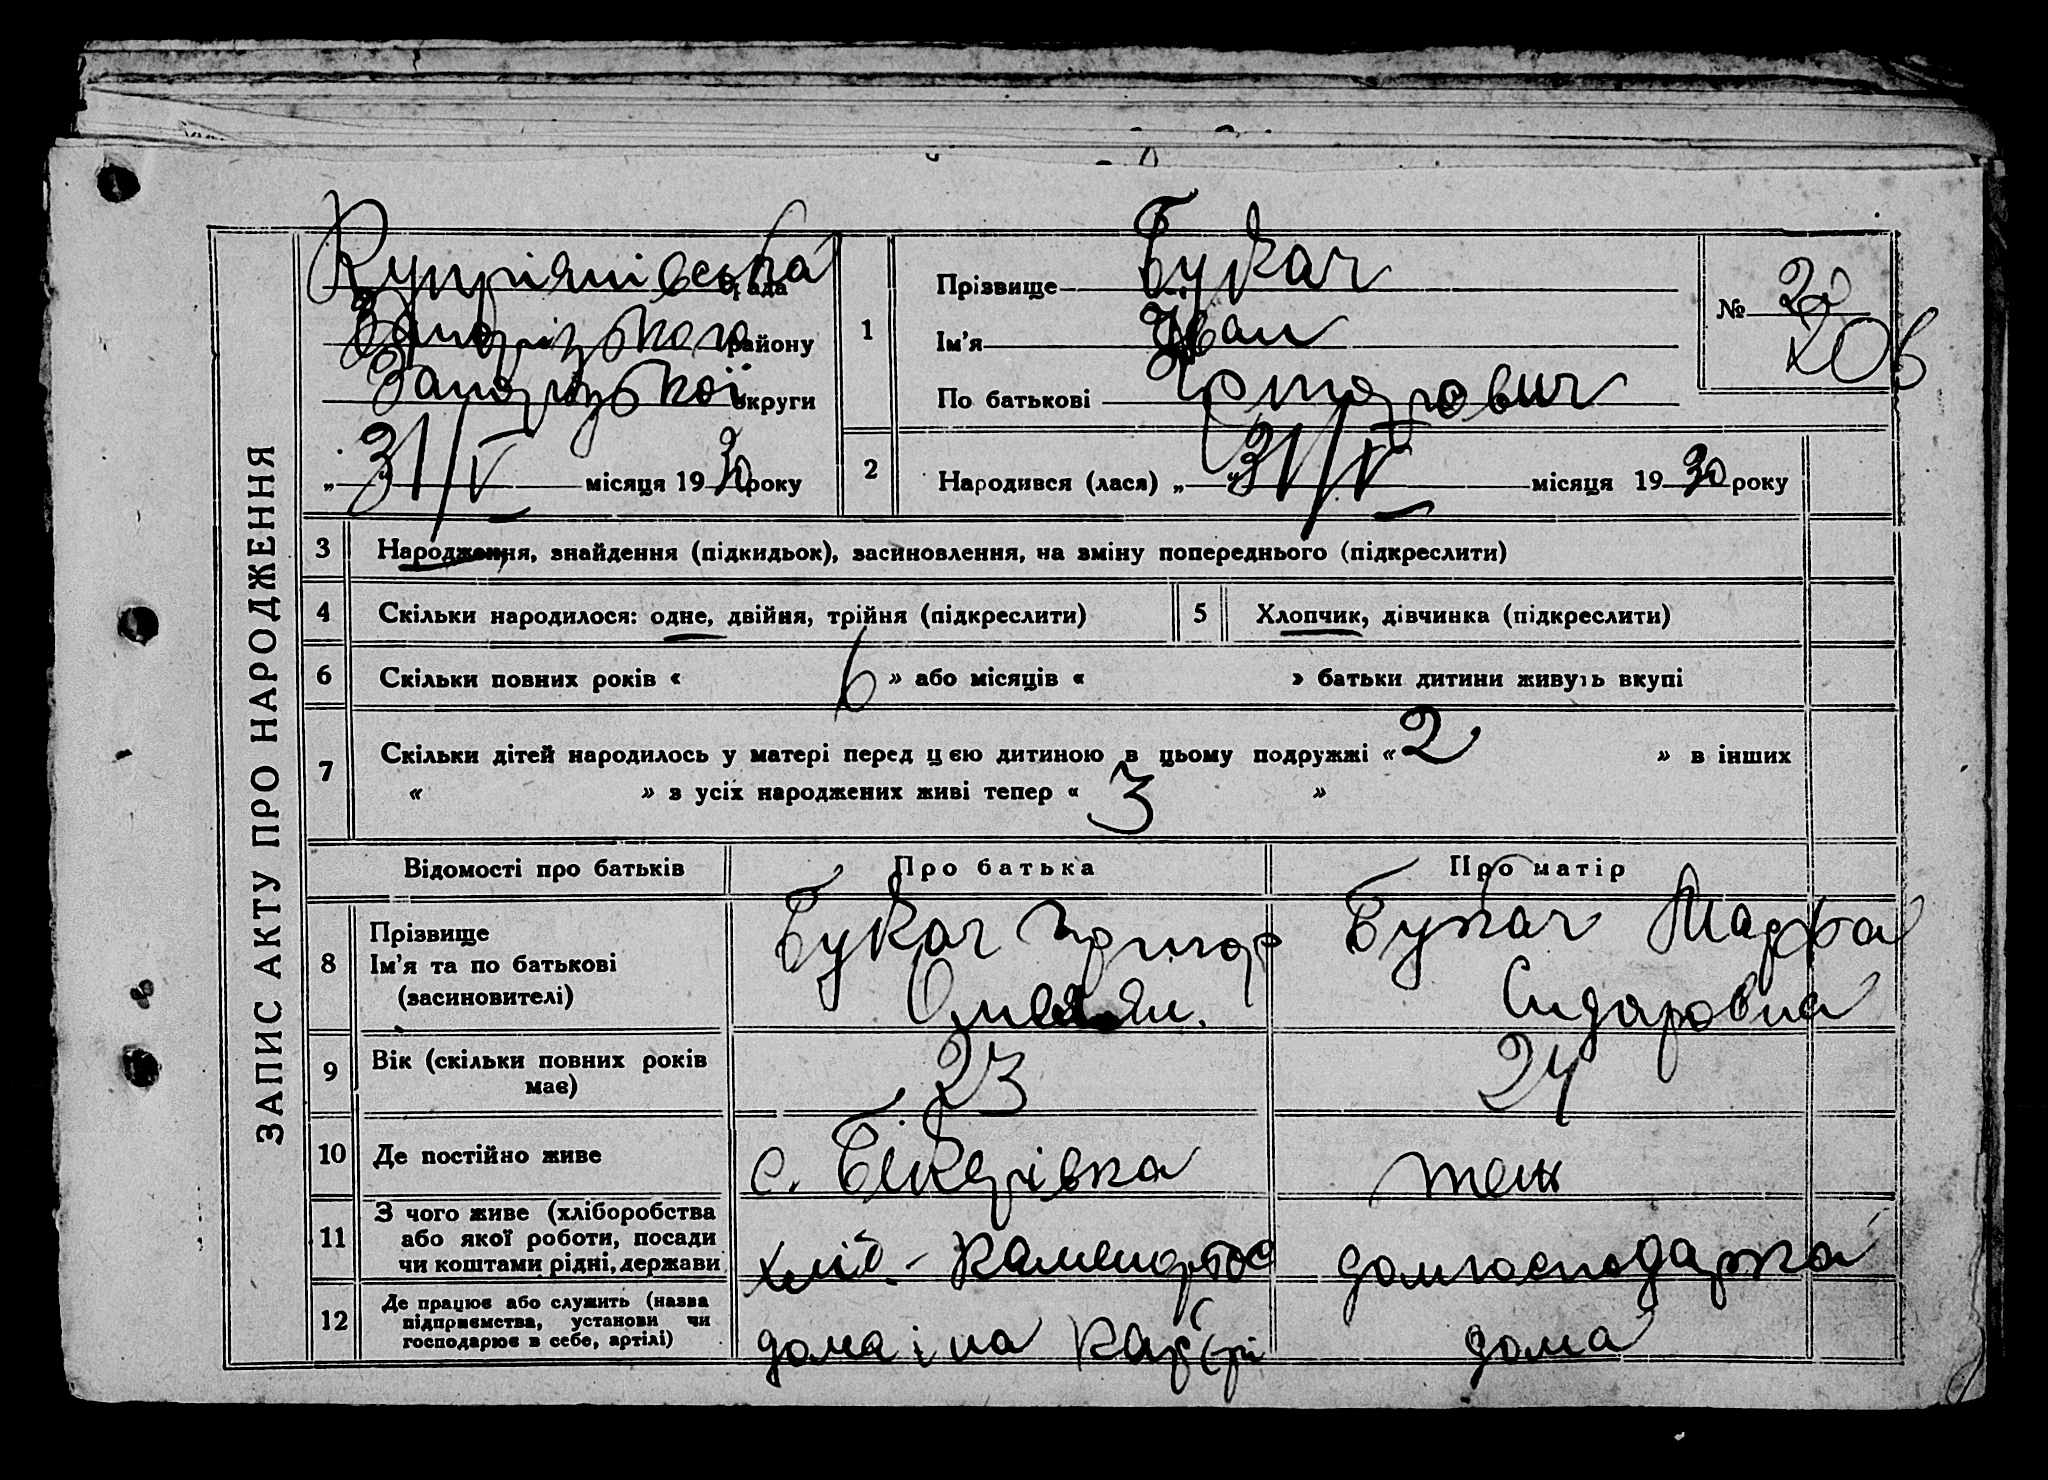 ЗАПИС АКТУ ПРО НАРОДЖЕННЯ
Купріянівська рада
Запорізького району
Запорізької округи
„ 31/V місяця 1930 року
1
Прізвище Букач
Ім'я Іван
По батькові Григорович
№ 20
2
Народився (лася) „ 31/V місяця 1930 року
3 Народження, знайдення (підкидьок), засиновлення, на зміну попереднього (підкреслити)
4 Скільки народилося: одне, двійня, трійня (підкреслити)
5 Хлопчик, дівчинка (підкреслити)
6 Скільки повних років « 6 » або місяців « » батьки дитини живуть вкупі
7 Скільки дітей народилось у матері перед цією дитиною в цьому подружжі « 2 » в інших
« » з усіх народжених живі тепер « 3 »
Відомості про батьків Про батька Про матір
8 Прізвище
Ім'я та по батькові
(засиновителі)
Букач Григор
Букач Марфа
Сидоровна
9 Вік (скільки повних років
має)
23
24
10 Де постійно живе
с. Бекарівка
теж
11 З чого живе (хліборобства
або якої роботи, посади
чи коштами рідні, держави
хліб.-каменярьс
домгосподарка
12 Де працює або служить (назва
підприємства, установи чи
господарює в себе, артілі)
дома і на кар'єрі
дома